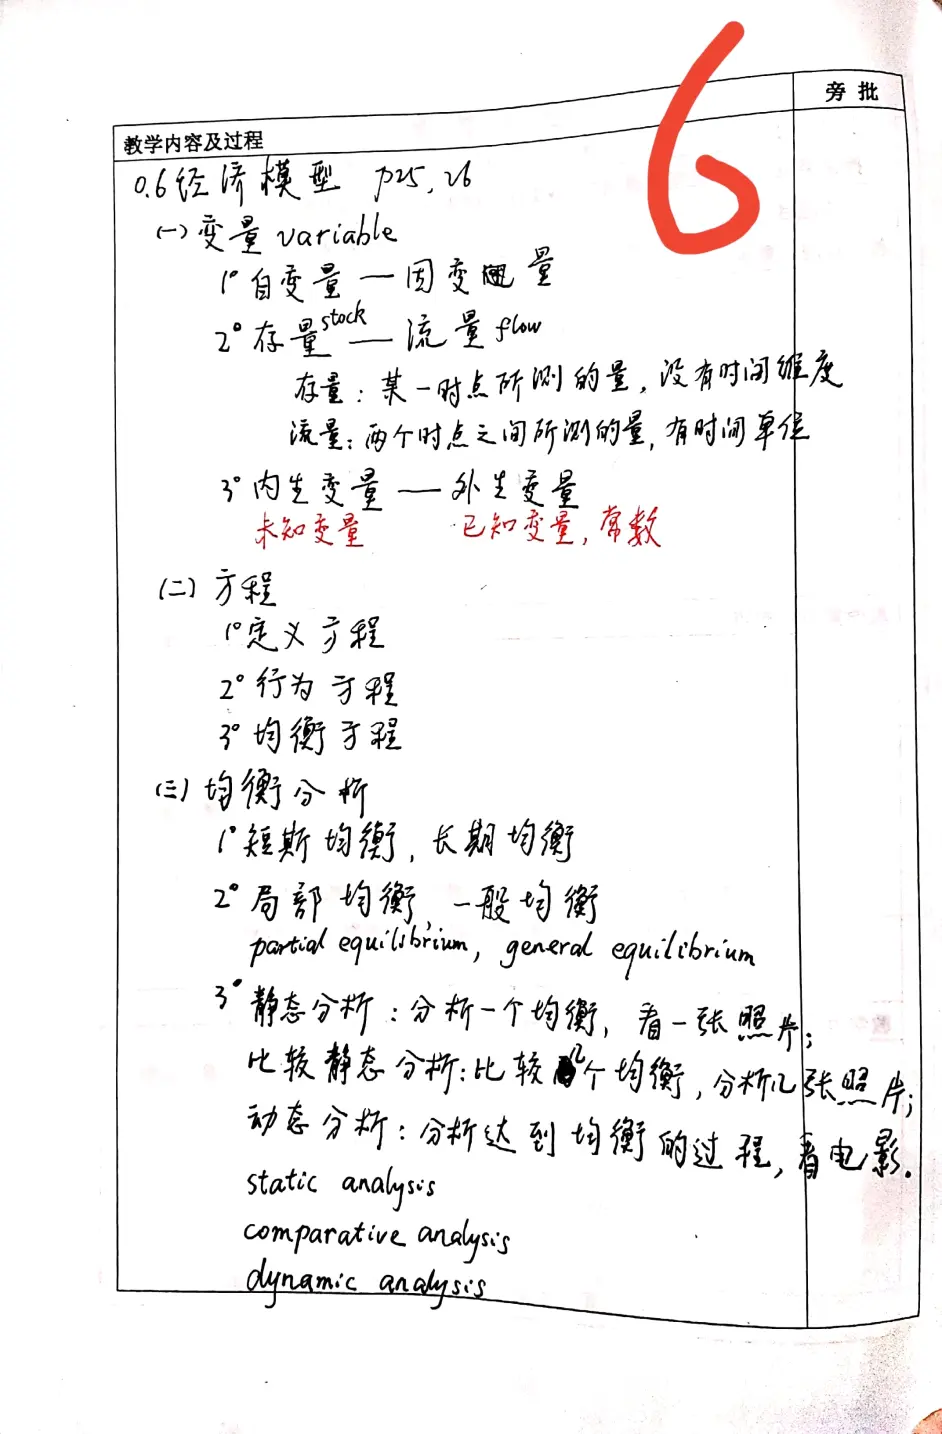 6
旁 批
教学内容及过程
0.6 经济模型 p25, 26
(一) 变量 variable
1° 自变量 — 因变量
2° 存量 stock — 流量 flow
存量: 某一时点所测的量, 没有时间维度
流量: 两个时点之间所测的量, 有时间单位
3° 内生变量 — 外生变量
未知变量 已知变量, 常数
(二) 方程
1° 定义方程
2° 行为方程
3° 均衡方程
(三) 均衡分析
1° 短期均衡, 长期均衡
2° 局部均衡, 一般均衡
partial equilibrium, general equilibrium
3° 静态分析: 分析一个均衡, 看一张照片;
比较静态分析: 比较几个均衡, 分析几张照片;
动态分析: 分析达到均衡的过程, 看电影.
static analysis
comparative analysis
dynamic analysis